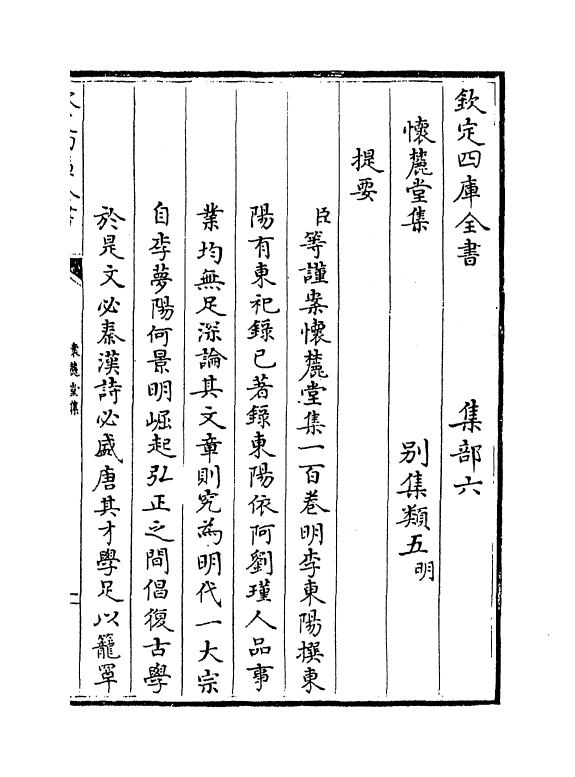 欽定四庫全書 集部六
懷麓堂集 别集類五明
提要
臣等謹案懷麓堂集一百卷明李東陽撰東
陽有東祀錄已著錄東陽依阿劉瑾人品事
業均無足深論其文章則究為明代一大宗
自李夢陽何景明崛起弘正之間倡復古學
於是文必秦漢詩必盛唐其才學足以籠罩
懷麓堂集